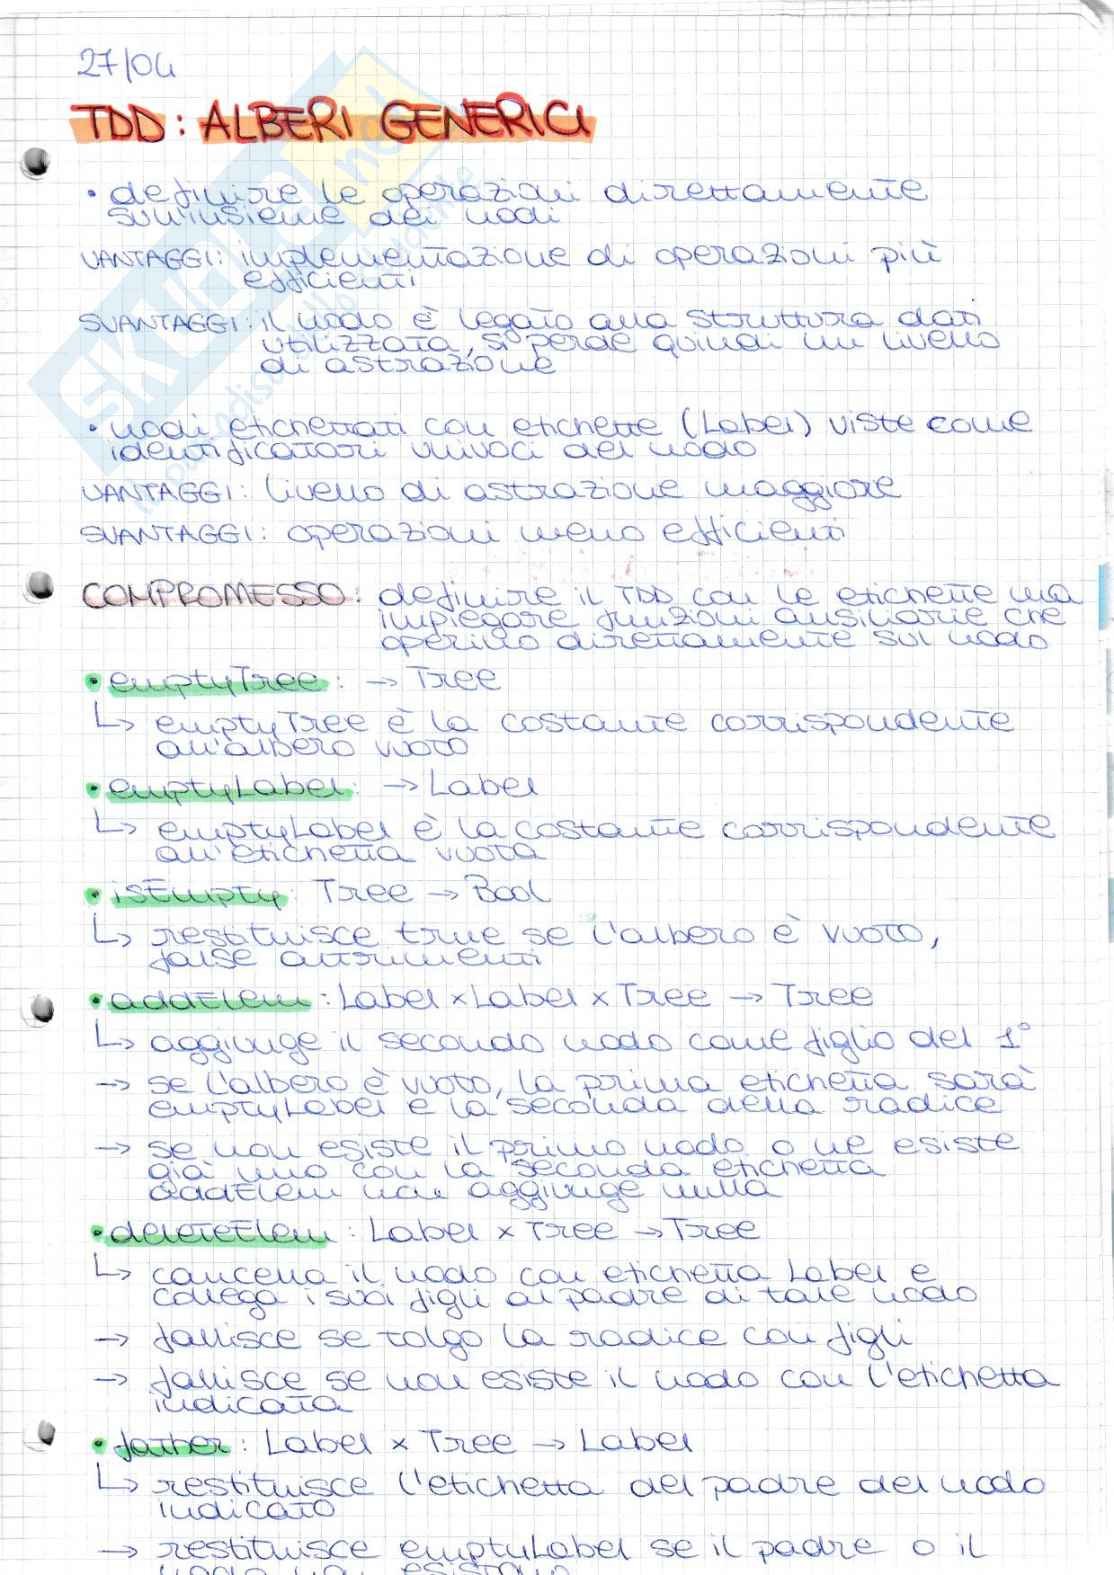 27/04
TDD: ALBERI GENERICI
• definire le operazioni direttamente
sull'insieme dei nodi
VANTAGGI: implementazione di operazioni più
efficienti
SVANTAGGI: il nodo è legato alla struttura dati
utilizzata, si perde quindi un livello
di astrazione
• nodi etichettati con etichette (Label) viste come
identificatori univoci del nodo
VANTAGGI: livello di astrazione maggiore
SVANTAGGI: operazioni meno efficienti
COMPROMESSO: definire il TDD con le etichette ma
impiegare funzioni ausiliarie che
operino direttamente sul nodo
• emptyTree: → Tree
↳ emptyTree è la costante corrispondente
all'albero vuoto
• emptyLabel: → Label
↳ emptyLabel è la costante corrispondente
all'etichetta vuota
• isEmpty: Tree → Bool
↳ restituisce true se l'albero è vuoto,
false altrimenti
• addElem: Label × Label × Tree → Tree
↳ aggiunge il secondo nodo come figlio del 1°
→ se l'albero è vuoto, la prima etichetta sarà
emptyLabel e la seconda della radice
→ se non esiste il primo nodo o ne esiste
già uno con la seconda etichetta
addElem non aggiunge nulla
• deleteElem: Label × Tree → Tree
↳ cancella il nodo con etichetta Label e
collega i suoi figli al padre di tale nodo
→ fallisce se tolgo la radice con figli
→ fallisce se non esiste il nodo con l'etichetta
indicata
• father: Label × Tree → Label
↳ restituisce l'etichetta del padre del nodo
indicato
→ restituisce emptyLabel se il padre o il
nodo non esistono